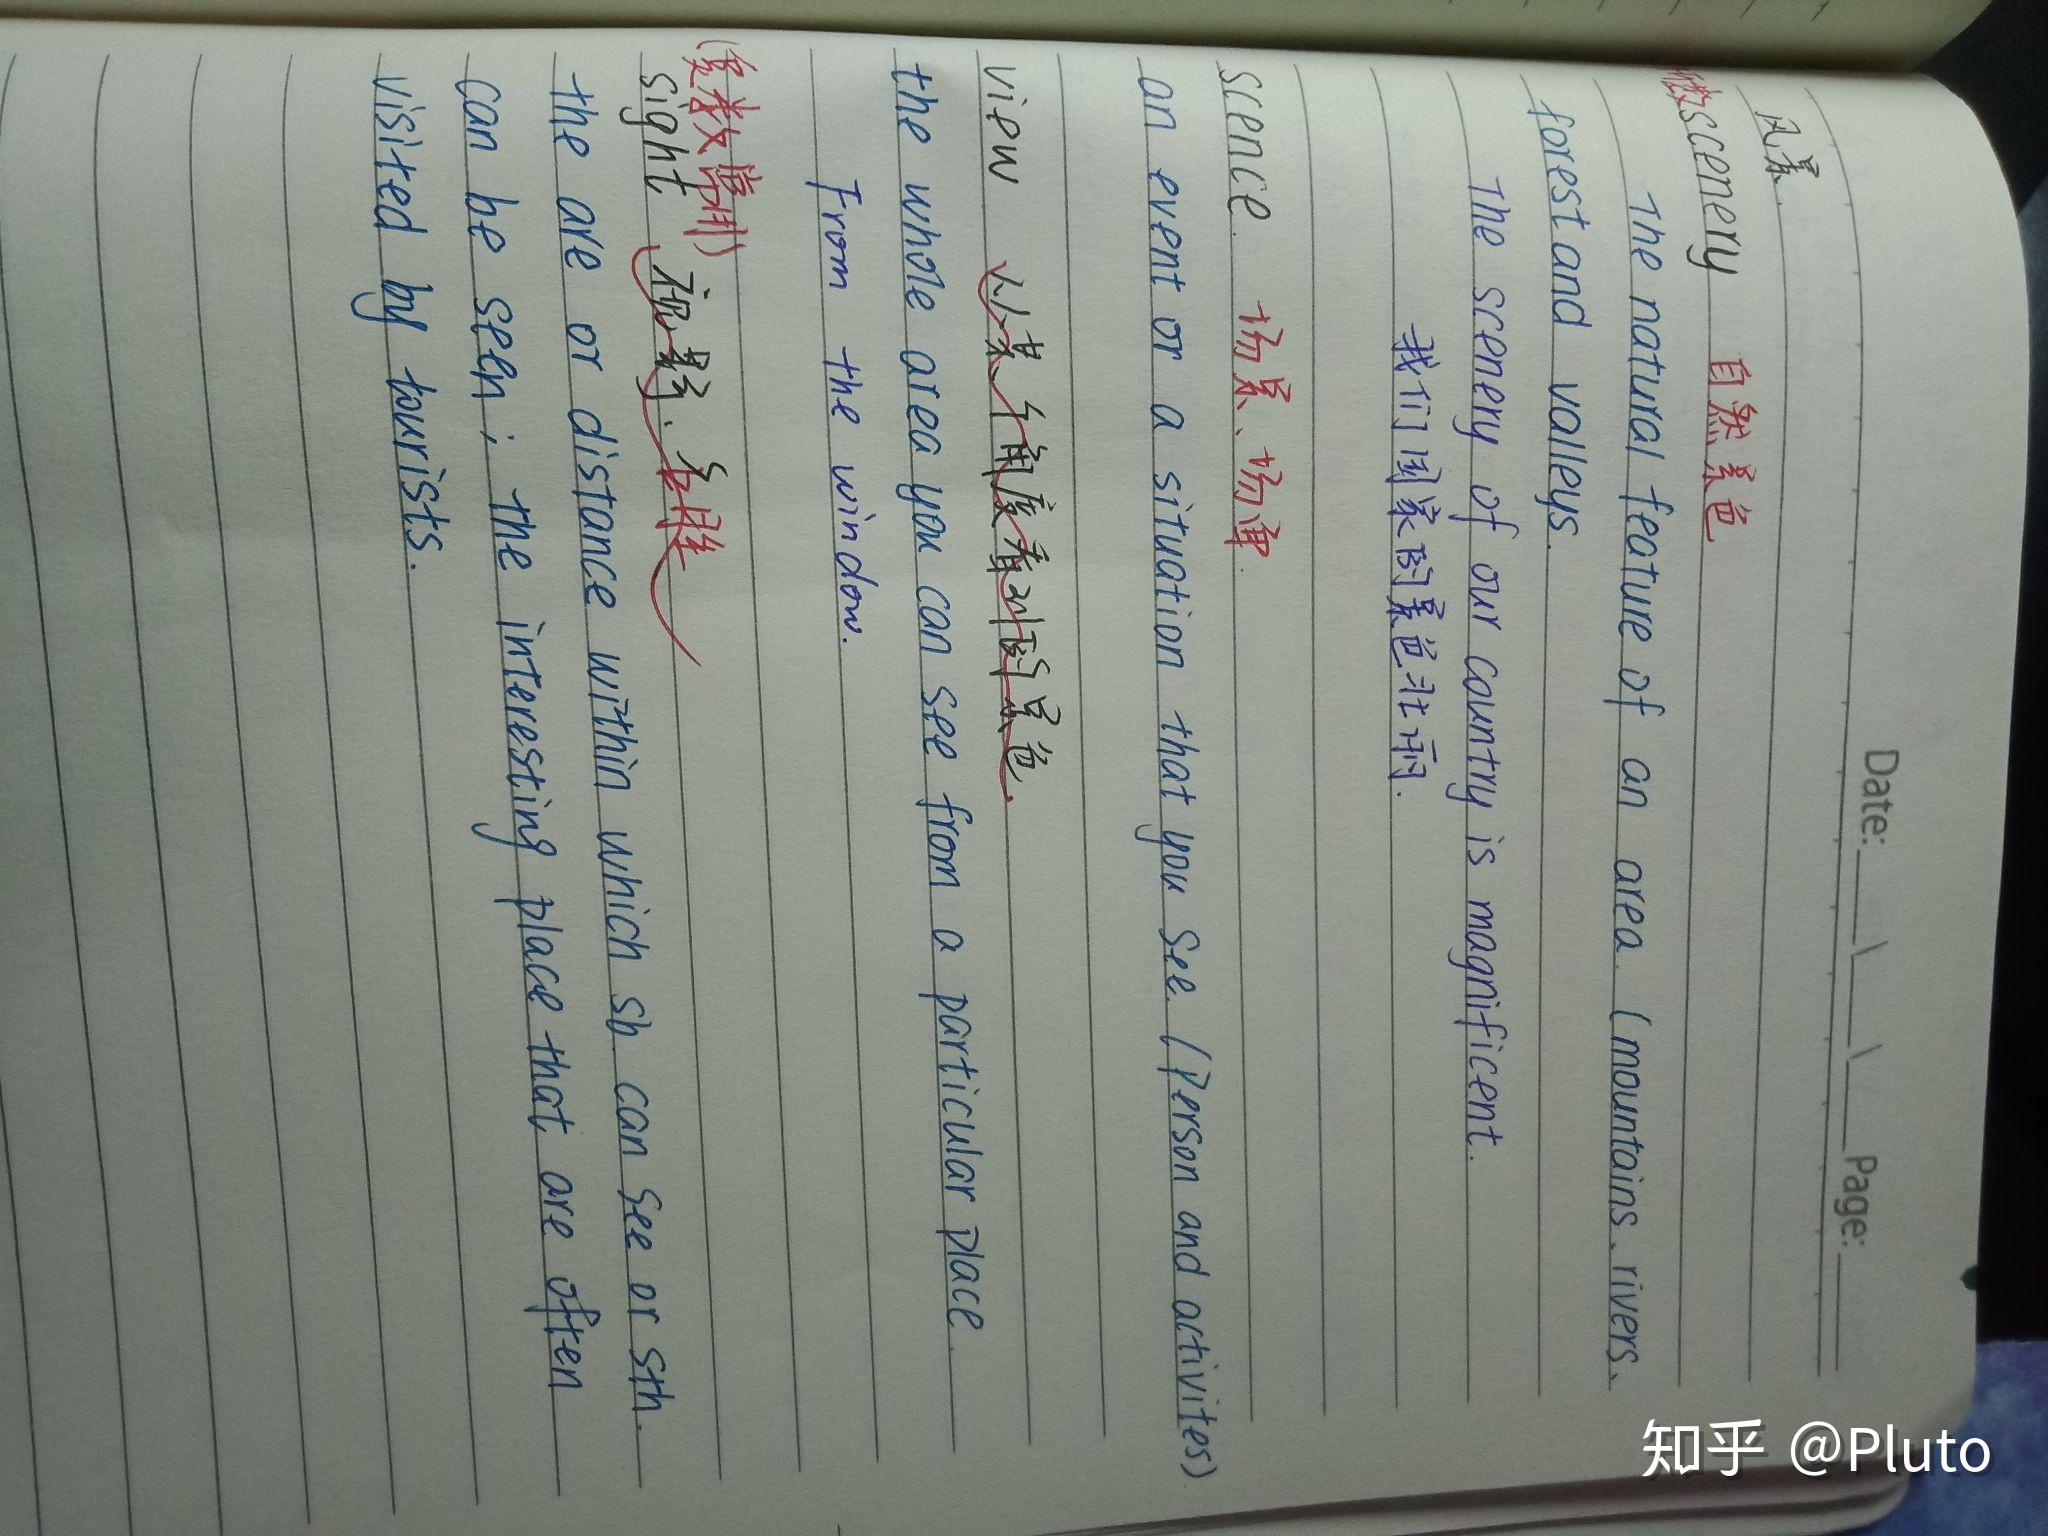 Date: \ \ Page:
风景.
scenery 自然景色
The natural feature of an area. (mountains、rivers、
forest and valleys.
The scenery of our country is magnificent.
我们国家的景色壮丽.
scence. 场景、场面.
an event or a situation that you see. (Person and activites)
view 从某个角度看到的景色.
the whole area you can see from a particular place.
From the window.
(复数常用)
sight 视野、名胜
the are or distance within which sb can see or sth.
can be seen; the interesting place that are often
visited by tourists.
知乎 @Pluto